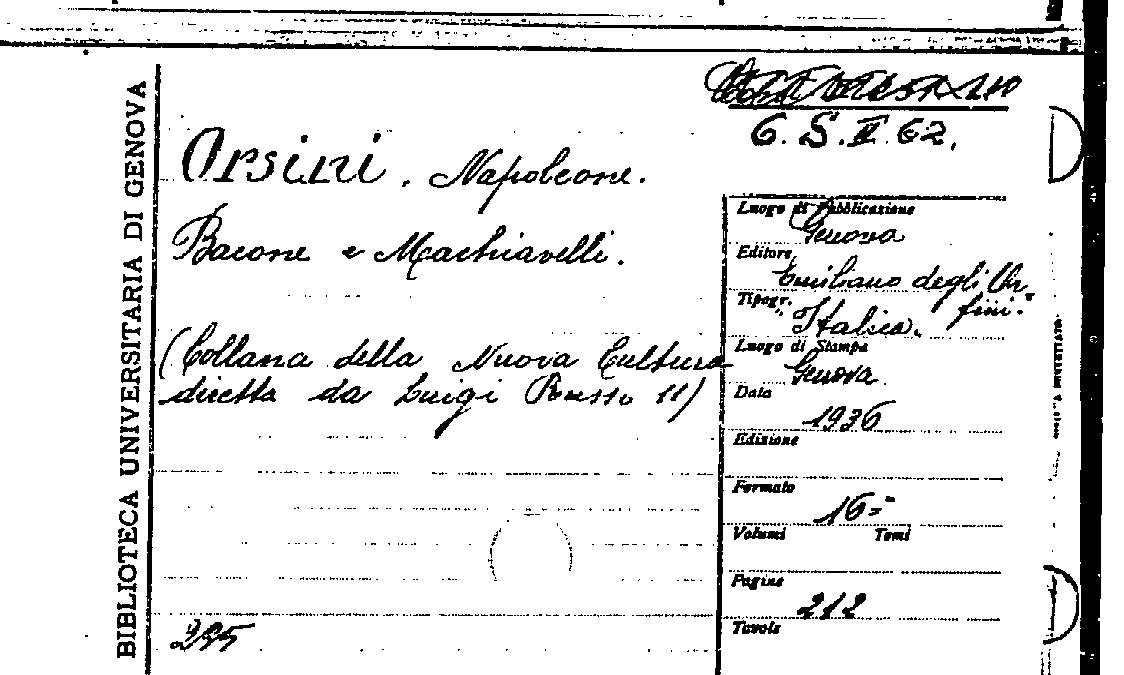 BIBLIOTECA UNIVERSITARIA DI GENOVA
6. S. II. 62.
Orsini, Napoleone.
Bacone e Machiavelli.
(Collana della Nuova Cultura
diretta da Luigi Russo 11)
295
Luogo di Pubblicazione
Genova
Editore
Emiliano degli Or=
fini.
Tipogr.
Italica.
Luogo di Stampa
Genova
Data
1936
Edizione
Formato
16=
Volumi Tomi
Pagine
212
Tavole